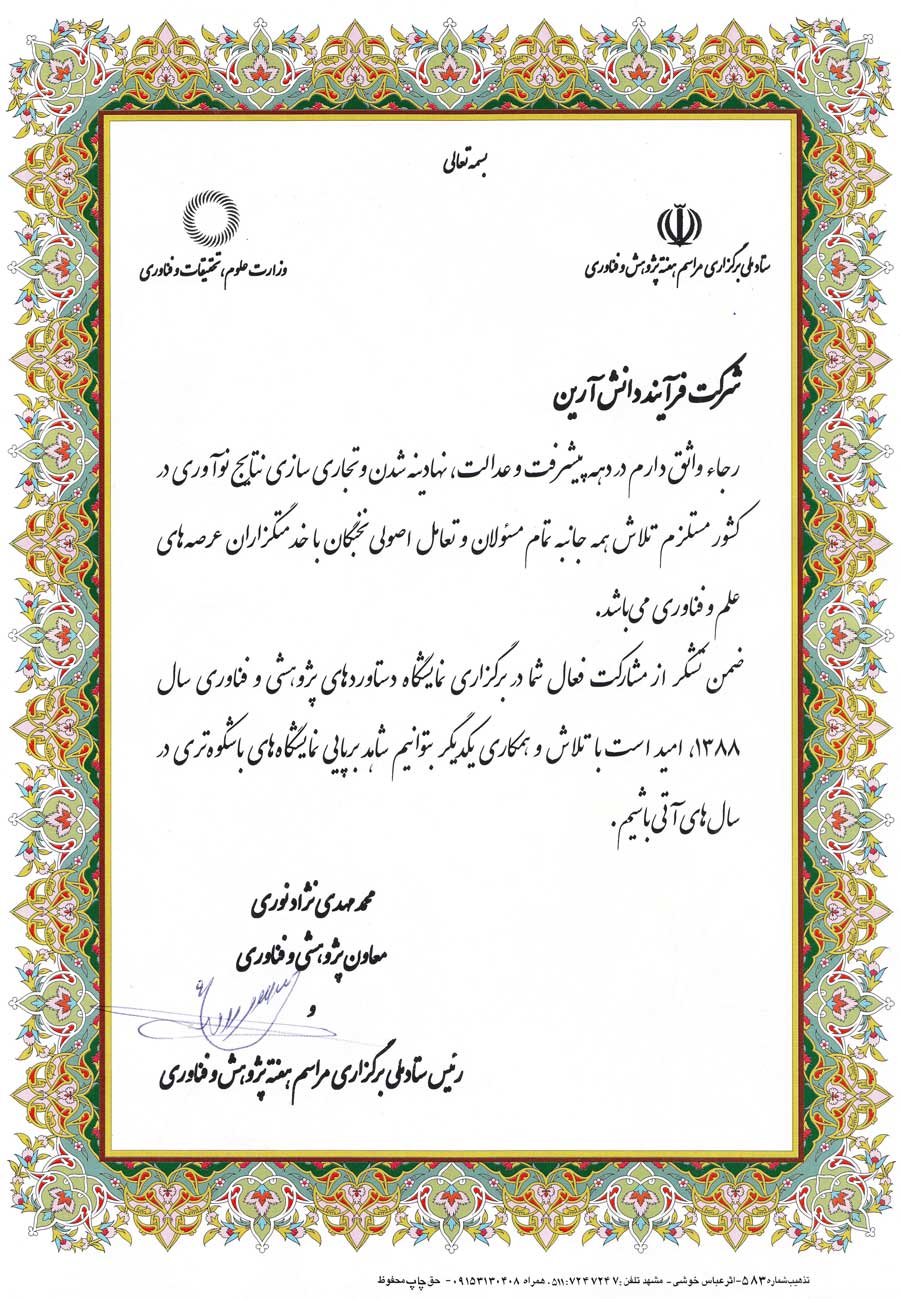 بسمه تعالی
ستاد ملی برگزاری مراسم هفته پژوهش و فناوری
وزارت علوم، تحقیقات و فناوری
شرکت فرآیند دانش آرین
رجاء واثق دارم در دهه پیشرفت و عدالت، نهادینه شدن و تجاری سازی نتایج نوآوری در
کشور مستلزم تلاش همه جانبه تمام مسئولان و تعامل اصولی نخبگان با خدمتگزاران عرصه های
علم و فناوری می باشد.
ضمن تشکر از مشارکت فعال شما در برگزاری نمایشگاه دستاوردهای پژوهشی و فناوری سال
۱۳۸۸، امید است با تلاش و همکاری یکدیگر بتوانیم شاهد برپایی نمایشگاه های باشکوه تری در
سال های آتی باشیم.
محمد مهدی نژاد نوری
معاون پژوهشی و فناوری
و
رئیس ستاد ملی برگزاری مراسم هفته پژوهش و فناوری
تذهیب شماره ۵۸۳- اثر عباس خوشی - مشهد تلفن: ۷۲۴۷۲۴۷-۰۵۱۱ همراه ۰۹۱۵۳۱۳۰۴۰۸ - حق چاپ محفوظ